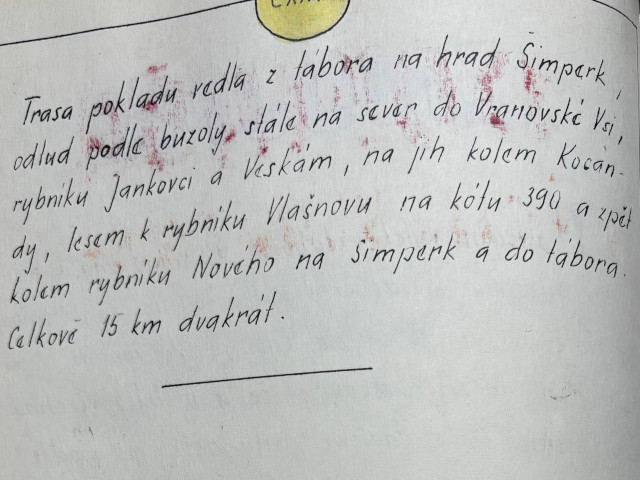 Trasa pokladu vedla z tábora na hrad Šimperk,
odtud podle buzoly stále na sever do Vranovské Vsi,
rybníku Jankovci a Veskám, na jih kolem Kocan-
dy, lesem k rybníku Vlašnovu na kótu 390 a zpět
kolem rybníku Nového na Šimperk a do tábora.
Celkově 15 km dvakrát.